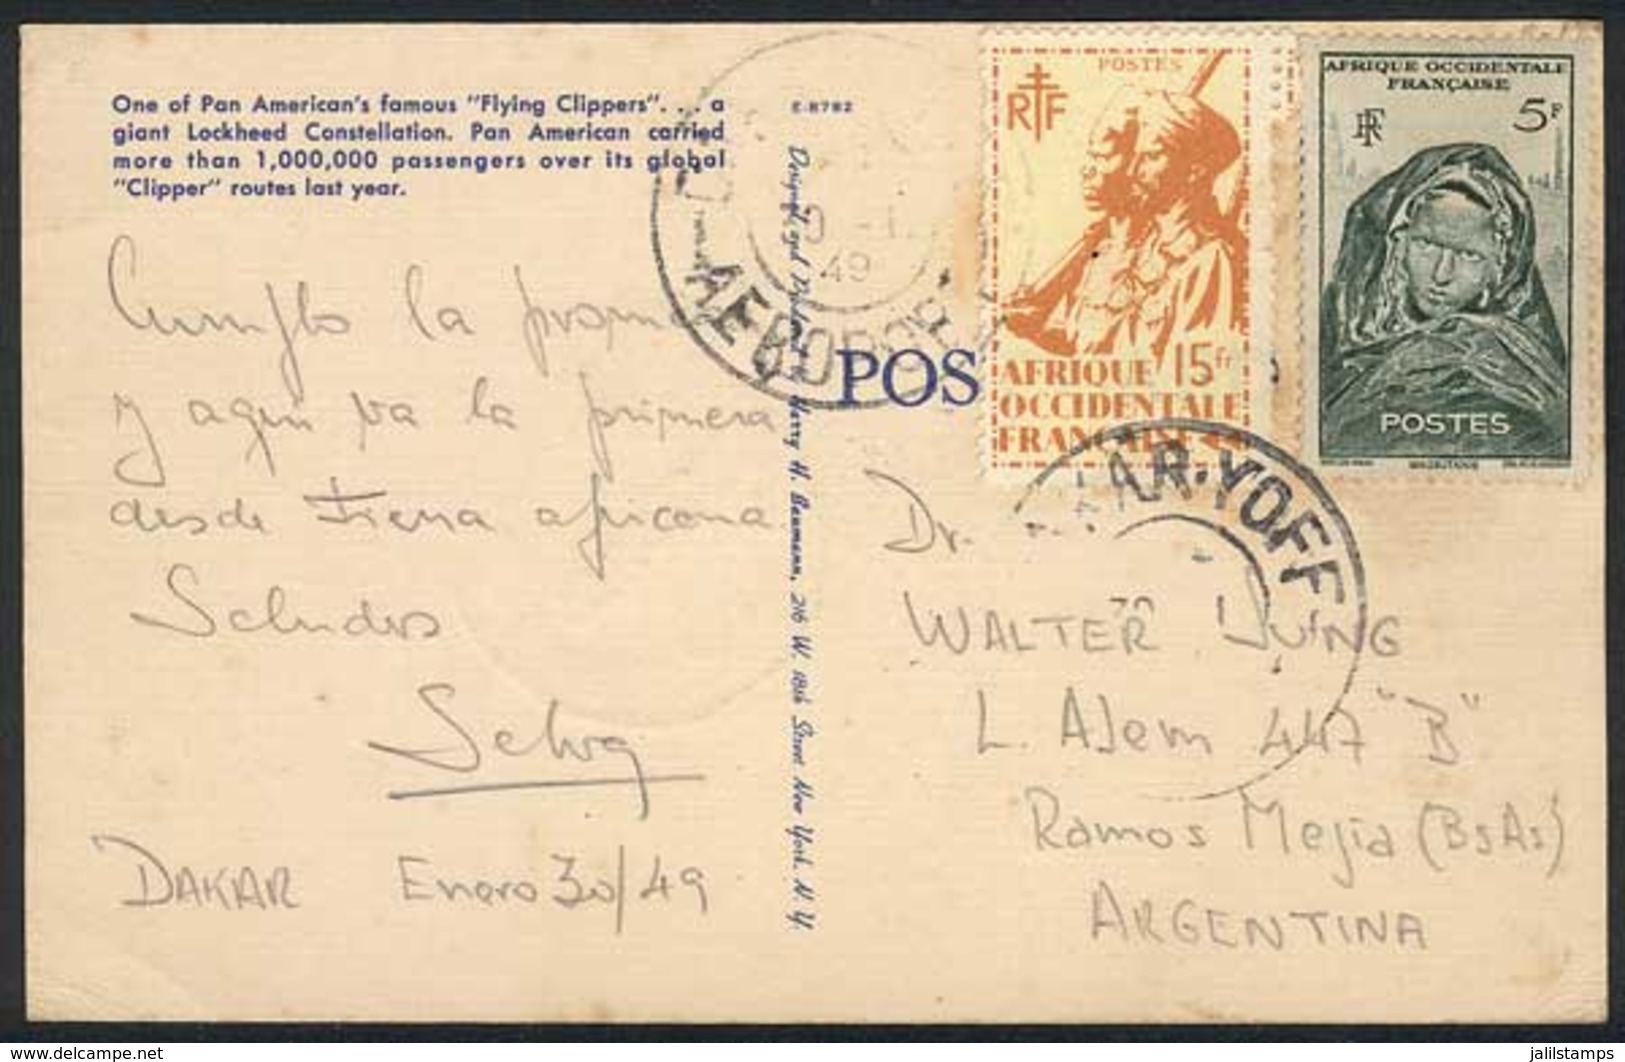 One of Pan American's famous "Flying Clippers". . . a
giant Lockheed Constellation. Pan American carried
more than 1,000,000 passengers over its global
"Clipper" routes last year.
E-8782
Cumplo la promesa
y aquí va la primera
desde tierra africana
Saludos
Selva
DAKAR Enero 30/49
Harry H. Baumann, 216 W. 18th Street New York, N. Y.
POS
49
AEROPO
POSTES
RF
AFRIQUE 15Fr
OCCIDENTALE
FRANÇAISE
AFRIQUE OCCIDENTALE
FRANÇAISE
RF 5F
POSTES
AR-YOFF
30
Dr.
WALTER JUNG
L. Alem 447 "B"
Ramos Mejia (BsAs)
ARGENTINA
www.delcampe.net
jalilstamps